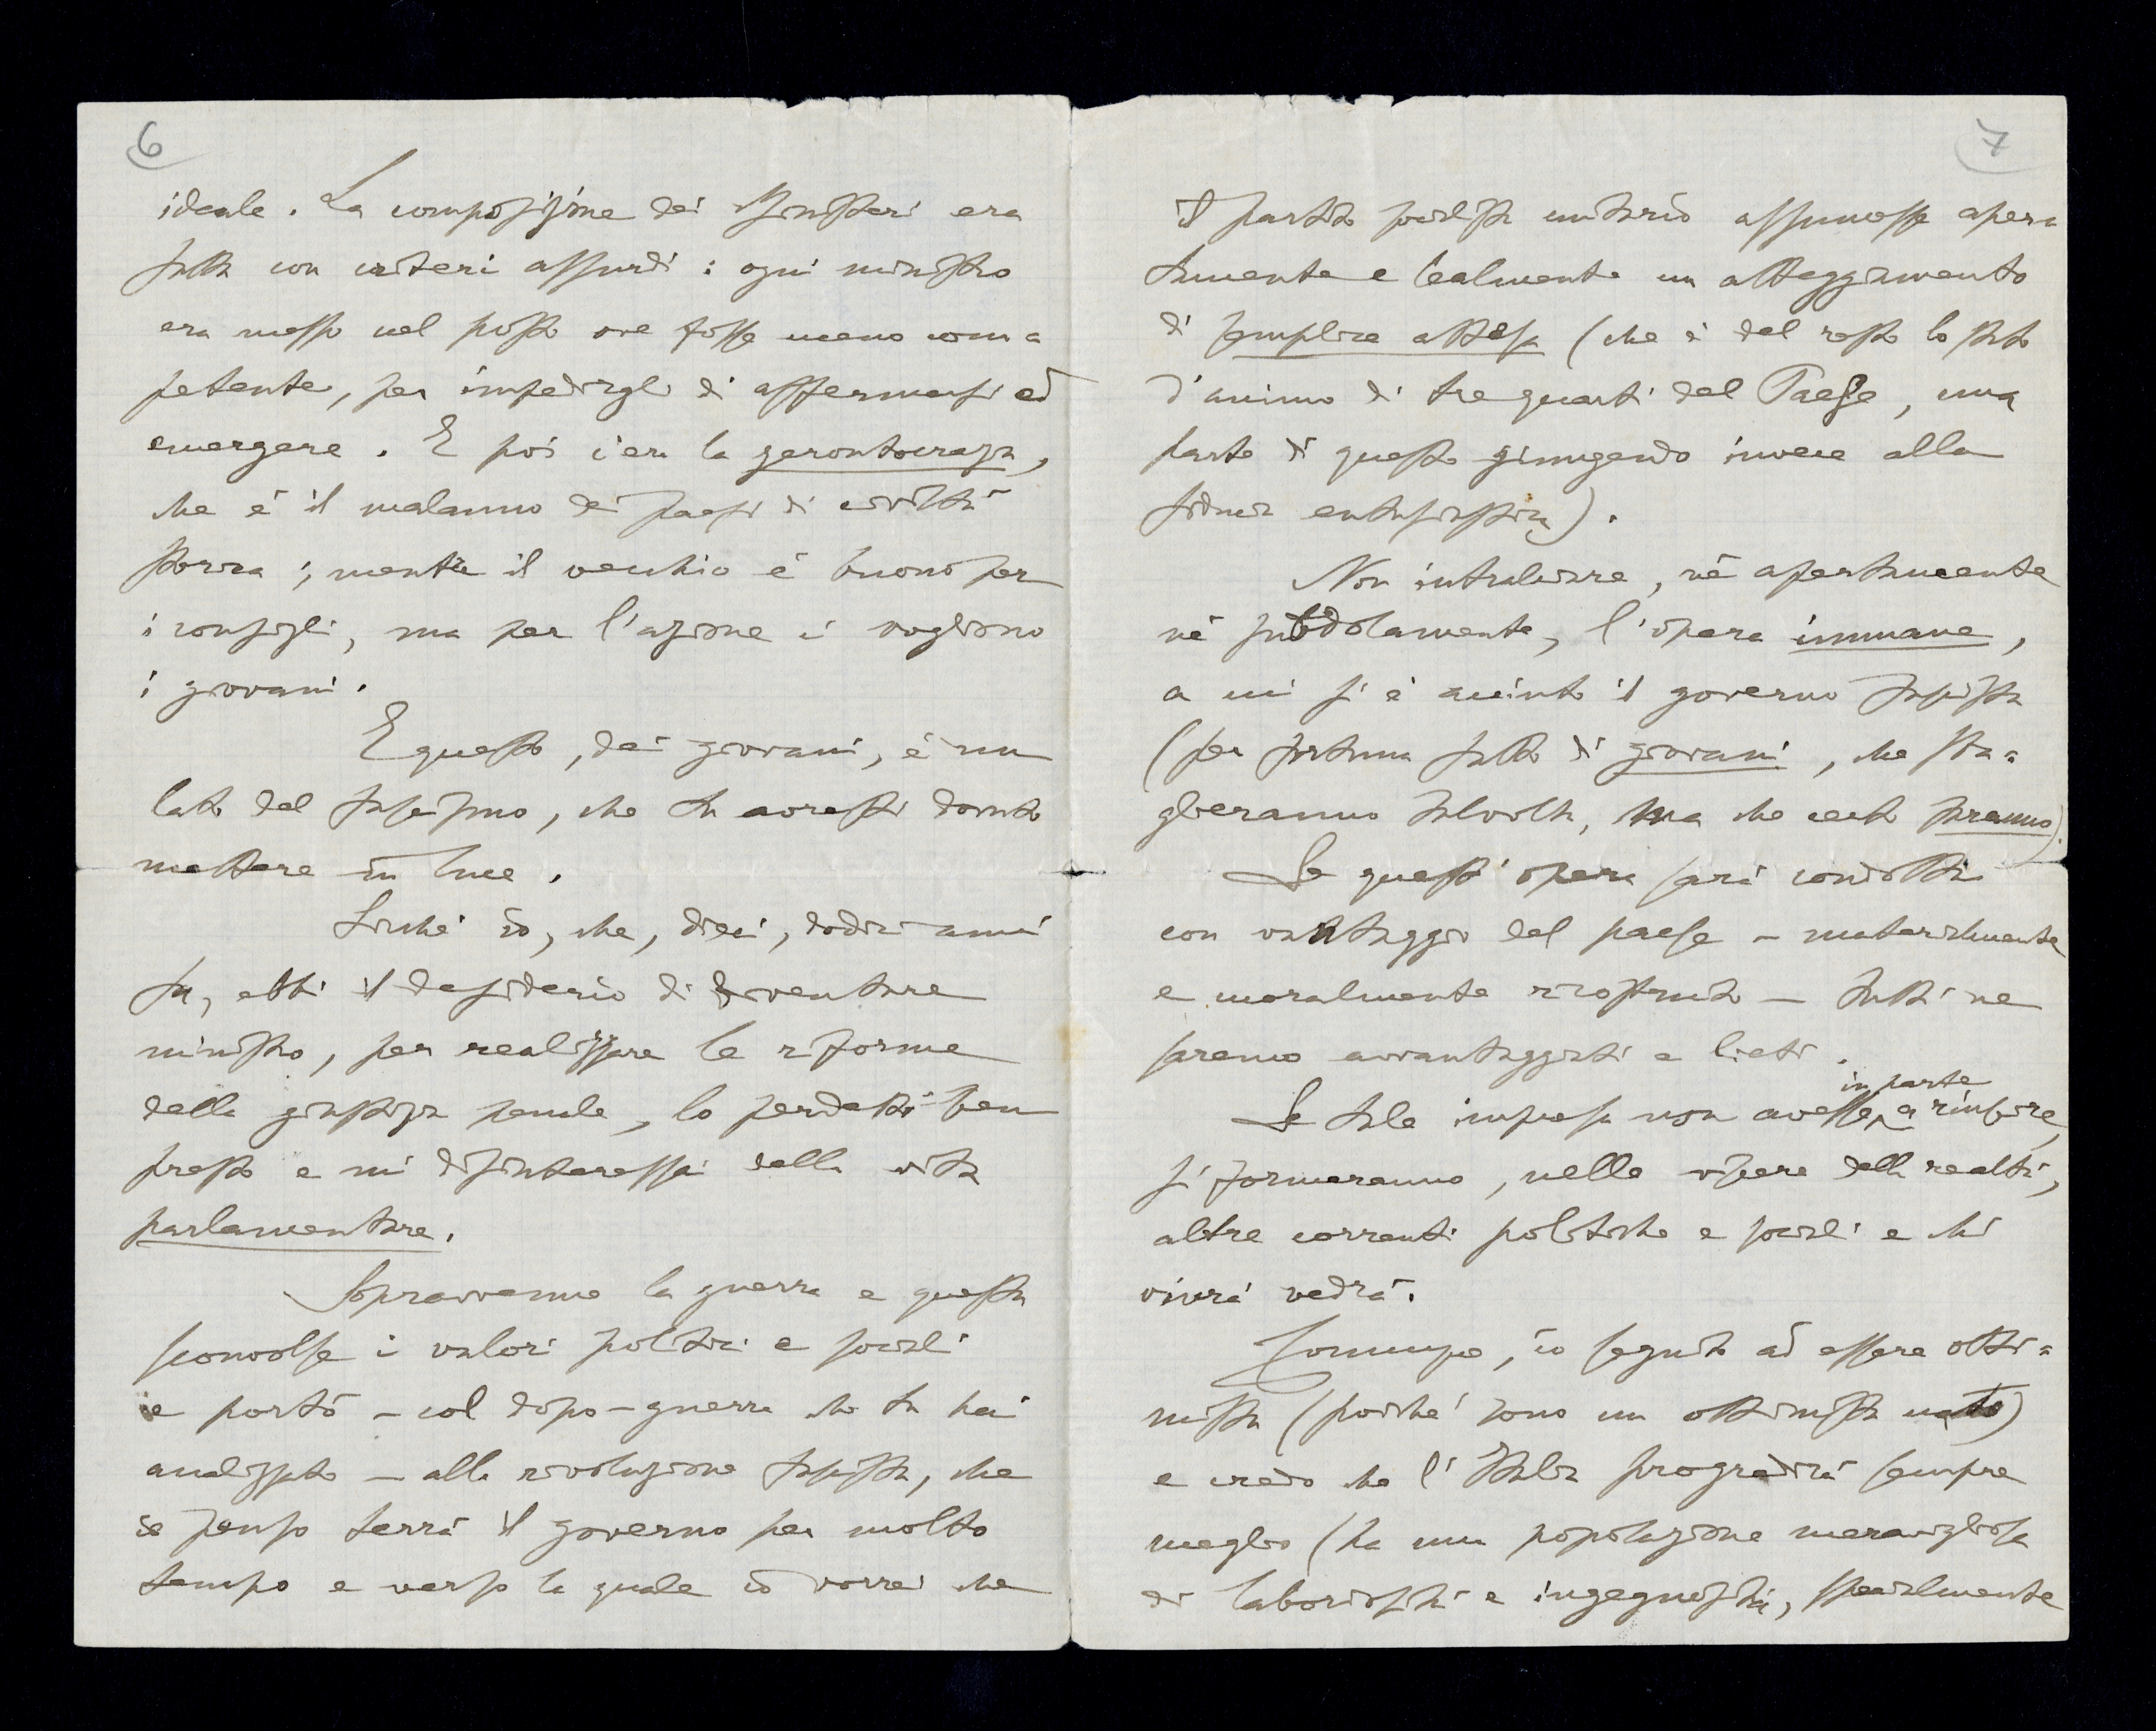 6
ideale. La composizione dei Ministeri era
fatta con criteri assurdi: ogni ministro
era messo nel posto ove fosse meno com=
petente, per impedirgli di affermarsi ed
emergere. E poi c'era la gerontocrazia,
che è il malanno dei paesi di civiltà
storica; mentre il vecchio è buono per
i consigli, ma per l'azione ci vogliono
i giovani.
E questo, dei giovani, è un
lato del fascismo, che tu avresti dovuto
mettere in luce.
Sicché io, che, dieci, dodici anni
fa, ebbi il desiderio di diventare
ministro, per realizzare le riforme
della giustizia penale, lo perdetti ben
presto e mi disinteressai della vita
parlamentare.
Sopravvenne la guerra e questa
sconvolse i valori politici e sociali
e portò – col dopo-guerra che tu hai
analizzato – alla rivoluzione fascista, che
io penso terrà il governo per molto
tempo e verso la quale io vorrei che
7
il partito socialista unitario assumesse aper=
tamente e lealmente un atteggiamento
di semplice attesa (che è del resto lo stato
d'animo di tre quarti del Paese, una
parte di questo giungendo invece alla
fiducia entusiastica).
Non intralciare, nè apertamente
nè subdolamente, l'opera immane,
a cui si è accinto il governo fascista
(per fortuna fatto di giovani, che sba=
glieranno talvolta, ma che certo faranno).
Se quest'opera sarà condotta
con vantaggio del paese – materialmente
e moralmente ricostruito – tutti ne
saremo avvantaggiati e lieti.
Se tale impresa non avesse in parte a riuscire,
si formeranno, nelle viscere della realtà,
altre correnti politiche e sociali e chi
vivrà vedrà.
Comunque, io seguito ad essere otti=
mista (poiché sono un ottimista nato)
e credo che l'Italia progredirà sempre
meglio (ha una popolazione meravigliosa
di laboriosità e ingegnosità, specialmente